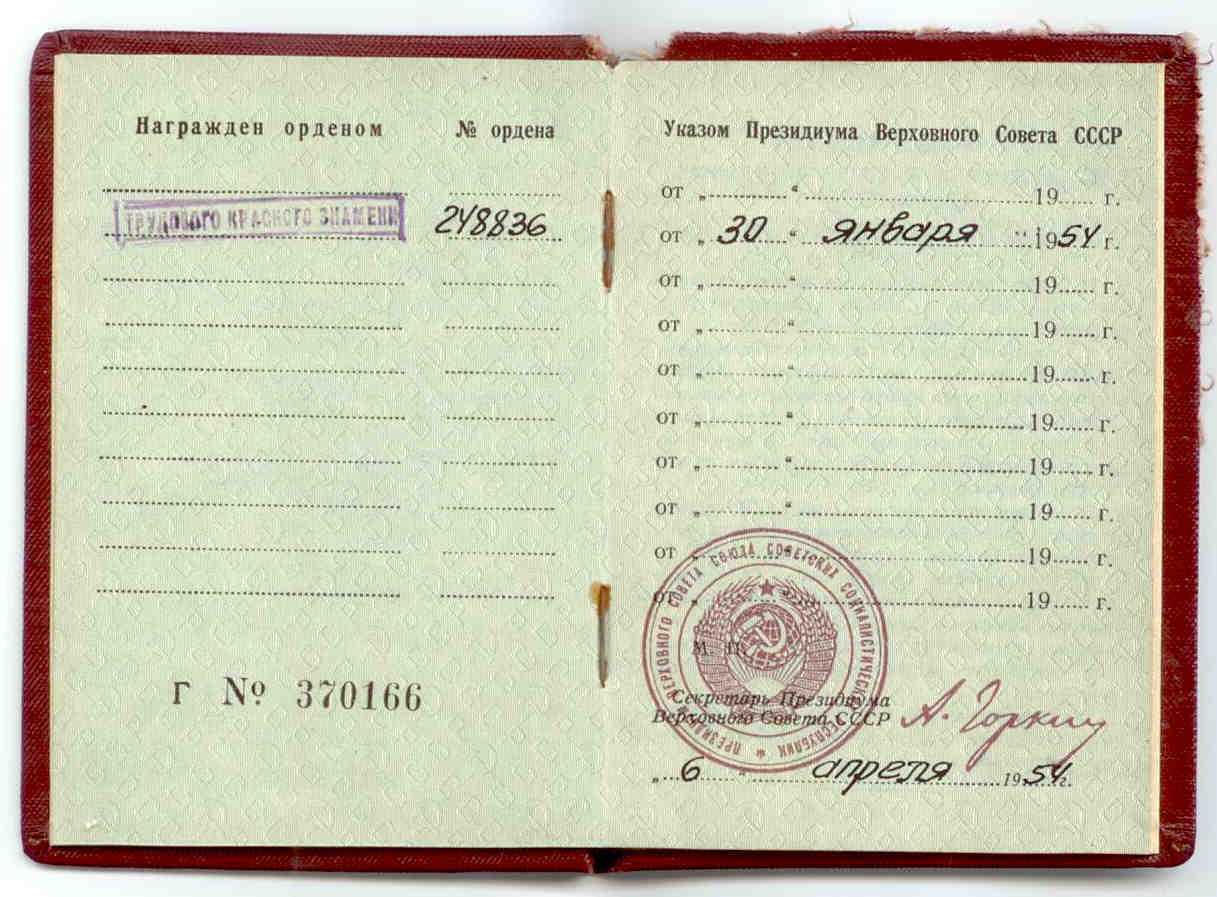 Награжден орденом
№ ордена
ТРУДОВОГО КРАСНОГО ЗНАМЕНИ
248836
Г № 370166
Указом Президиума Верховного Совета СССР
от „ “ 19 г.
от „ 30 “ января 1954 г.
от „ “ 19 г.
от „ “ 19 г.
от „ “ 19 г.
от „ “ 19 г.
от „ “ 19 г.
от „ “ 19 г.
от „ “ 19 г.
от „ “ 19 г.
ПРЕЗИДИУМ ВЕРХОВНОГО СОВЕТА СОЮЗА СОВЕТСКИХ СОЦИАЛИСТИЧЕСКИХ РЕСПУБЛИК
М. П.
Секретарь Президиума
Верховного Совета СССР
А. Горкин
„ 6 “ апреля 1954 г.